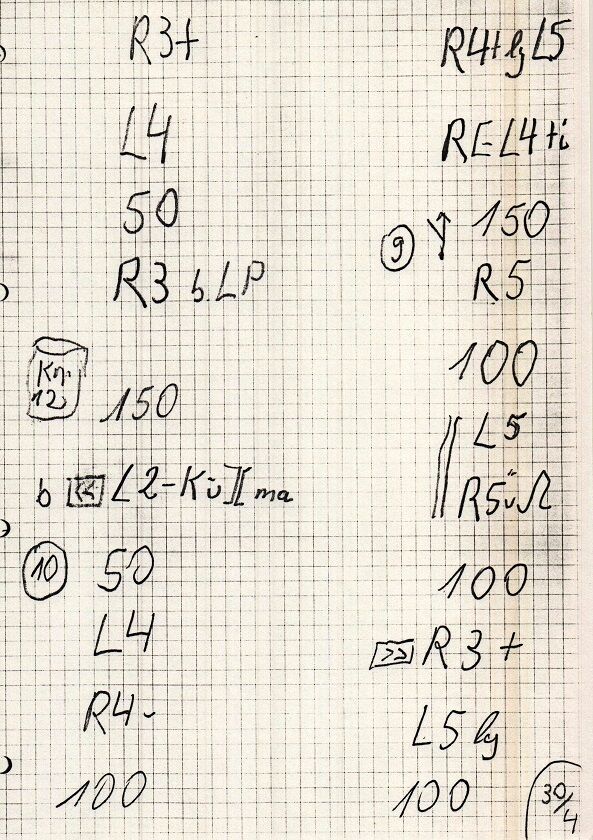 R3+
L4
50
R3 b. LP
Km
12
150
b << L2-Kü][ ma
10
50
L4
R4-
100
R4+ lg L5
L4+i
9
150
R5
100
L5
R5üΩ
100
>> R3+
L5 lg
100
30/4